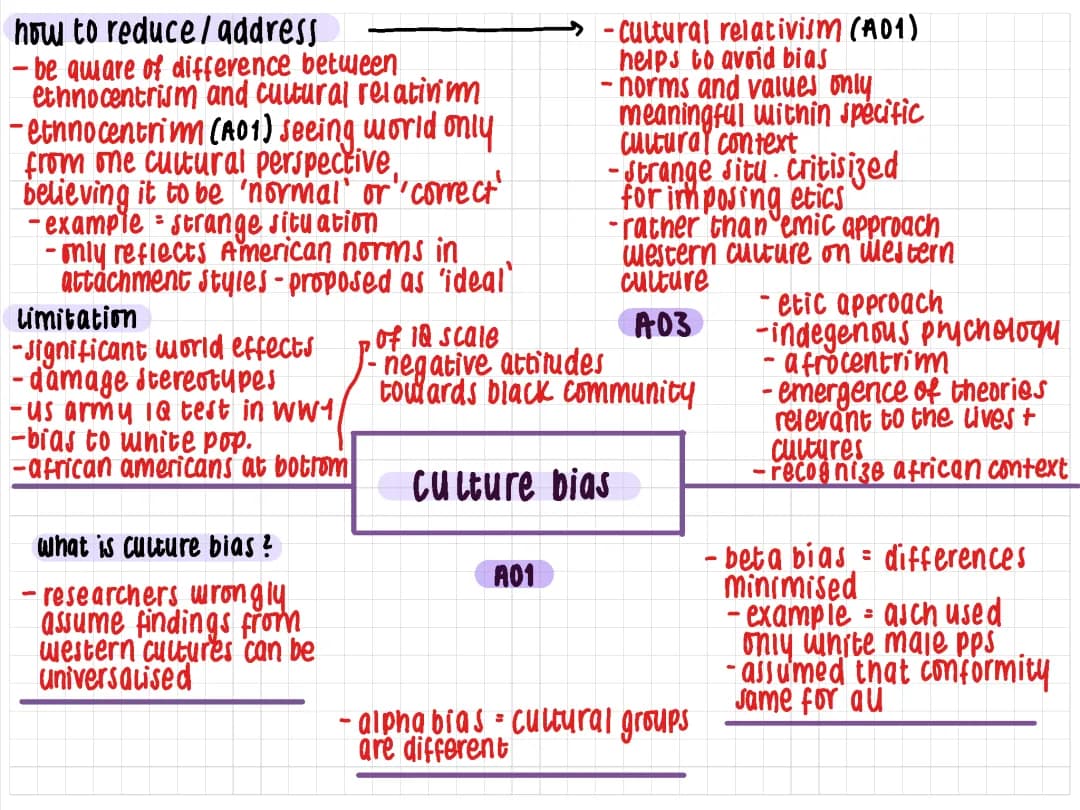 how to reduce/address
- be aware of difference between
ethnocentrism and cultural relativism
- ethnocentrism (A01) seeing world only
from one cultural perspective
believing it to be 'normal' or 'correct'
- example = strange situation
- only reflects American norms in
attachment styles - proposed as 'ideal'
- cultural relativism (A01)
helps to avoid bias
- norms and values only
meaningful within specific
cultural context
- strange situ. critisized
for imposing etics
- rather than emic approach
western culture on western
culture
limitation
- significant world effects
- damage stereotypes
- us army IQ test in WW1
- bias to white pop.
- african americans at bottom
of IQ scale
- negative attitudes
towards black community
A03
- etic approach
- indegenous psychology
- afrocentrism
- emergence of theories
relevant to the lives +
cultures
- recognize african context
culture bias
what is culture bias?
- researchers wrongly
assume findings from
western cultures can be
universalised
A01
- alpha bias = cultural groups
are different
- beta bias = differences
minimised
- example = asch used
only white male pps
- assumed that conformity
same for all